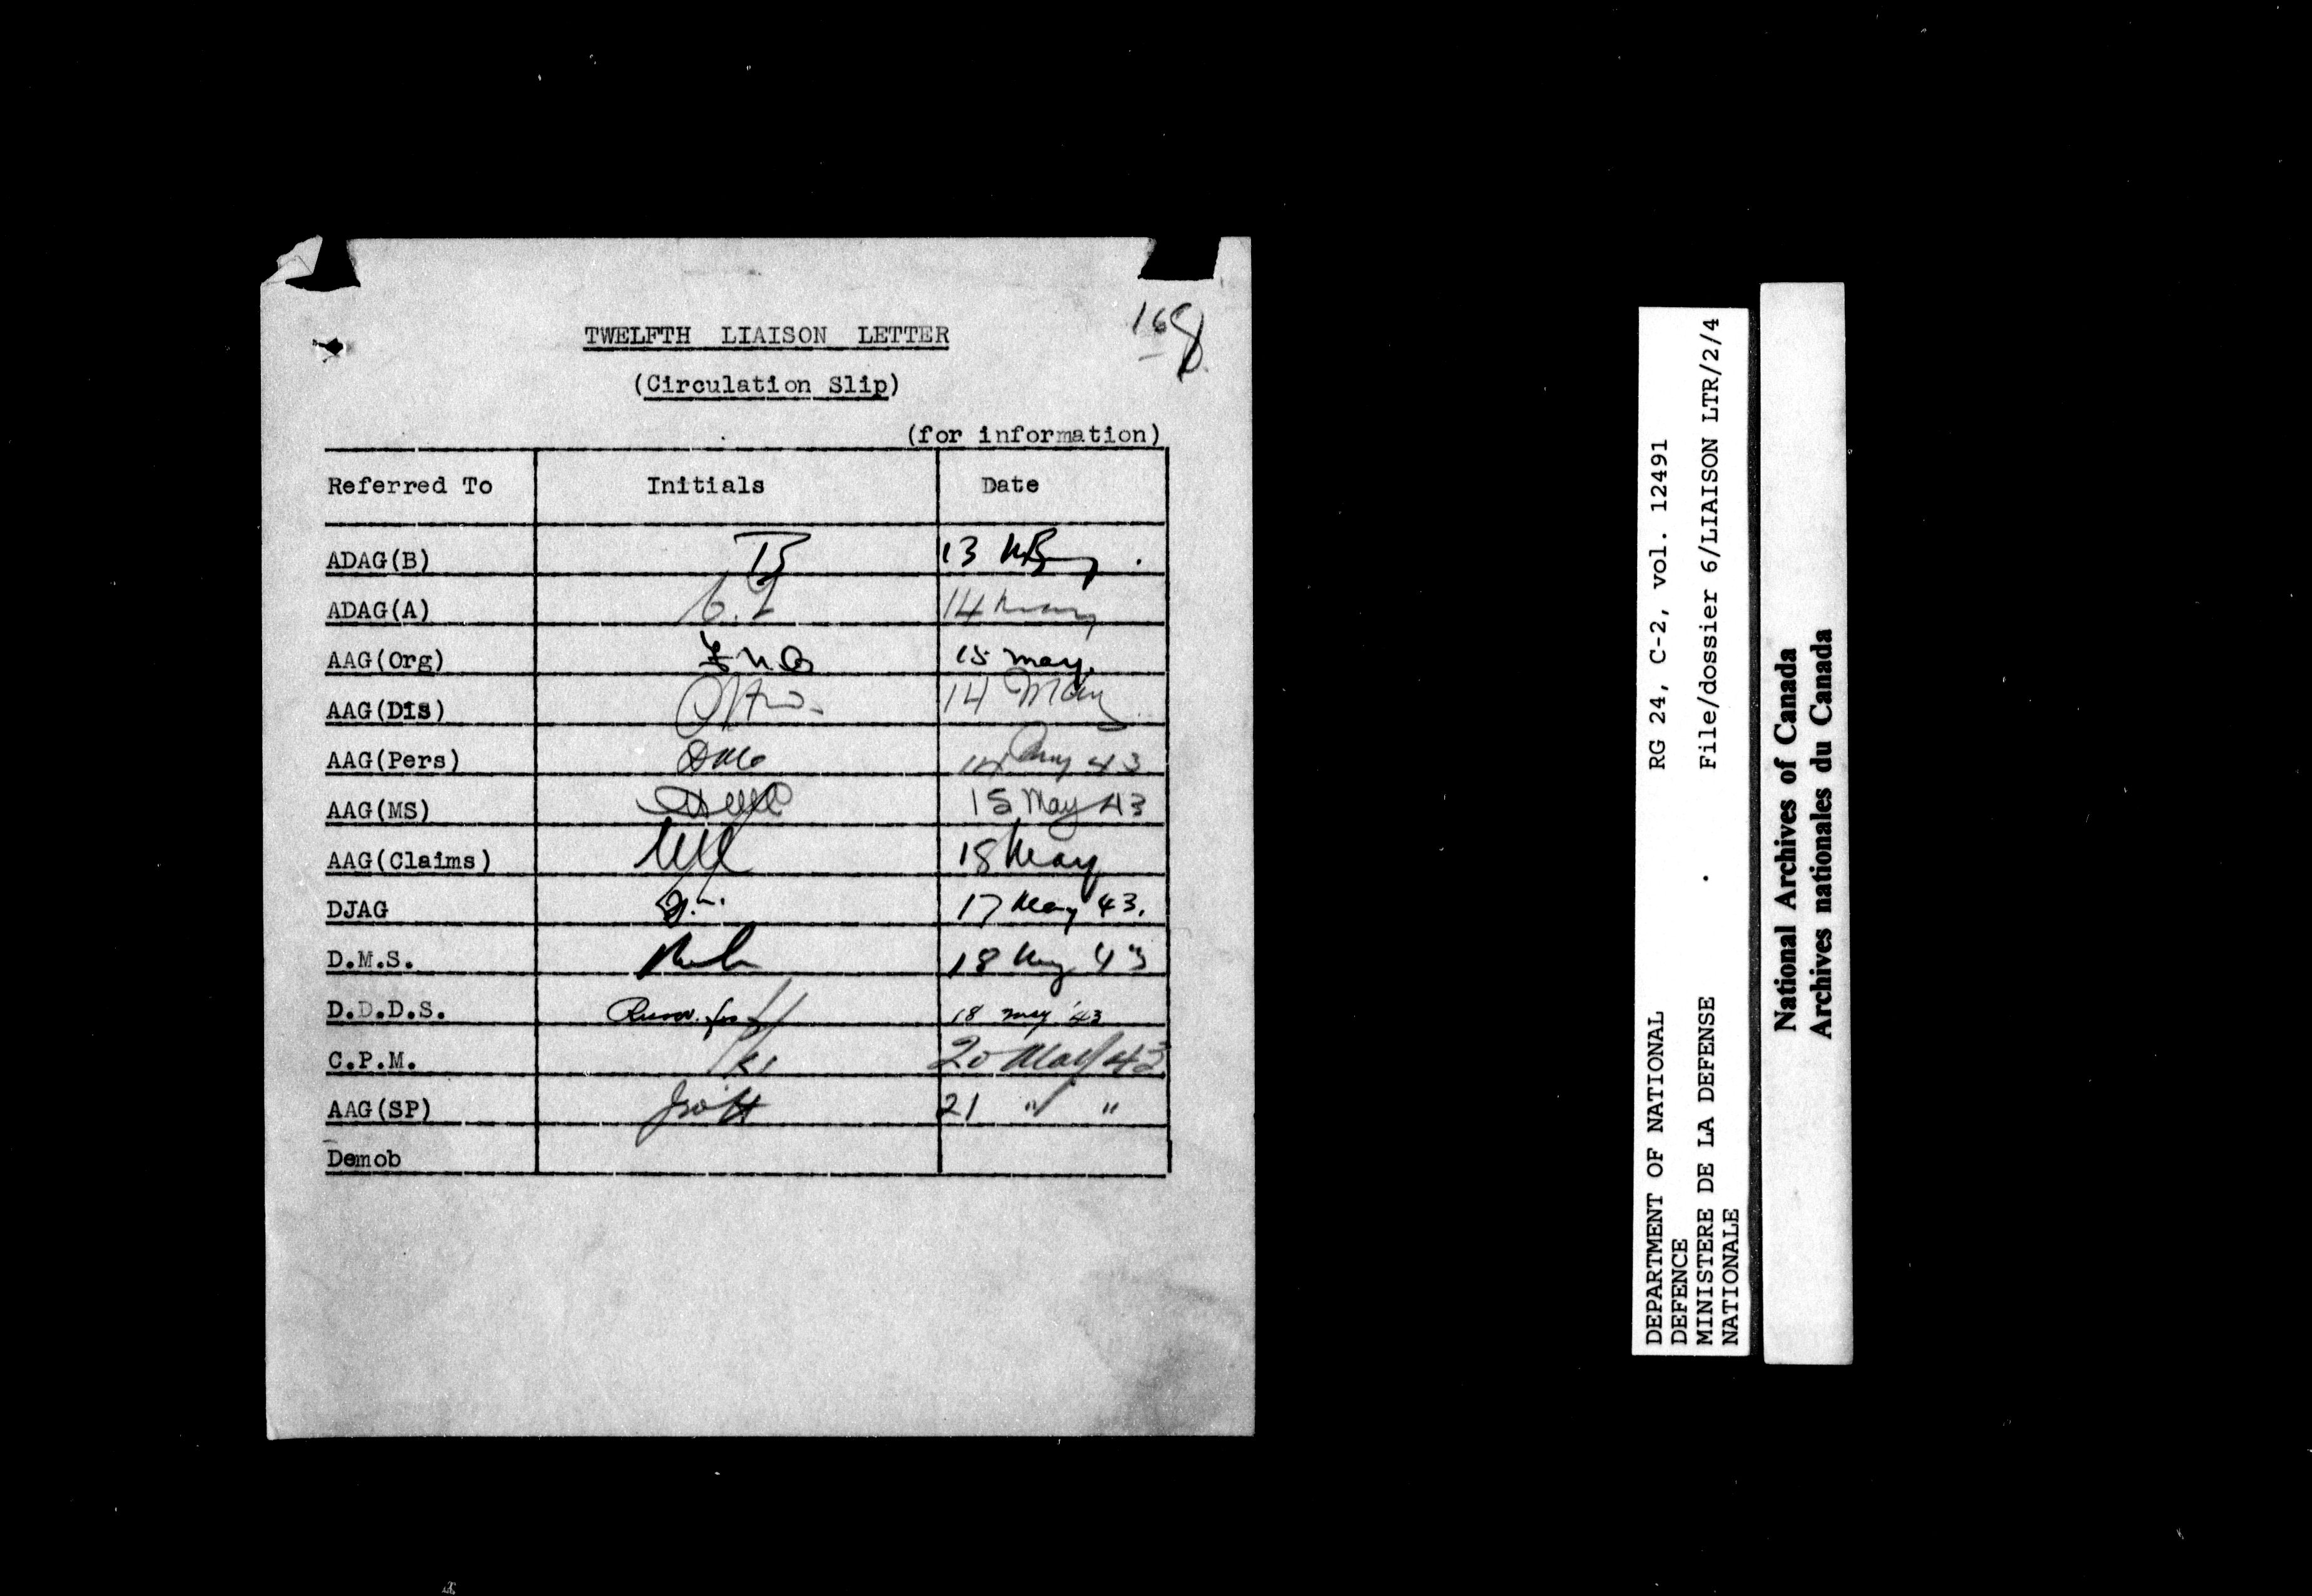 168
TWELFTH LIAISON LETTER
(Circulation Slip)
(for information)
Referred To Initials Date
ADAG(B) 13 May
ADAG(A) 14 May
AAG(Org) 15 May.
AAG(Dis) 14 May
AAG(Pers) 14 May 43
AAG(MS) 15 May 43
AAG(Claims) 18 May
DJAG 17 May 43.
D.M.S. 18 May 43
D.D.D.S. 18 May '43
C.P.M. 20 May 43
AAG(SP) 21 " "
Demob
DEPARTMENT OF NATIONAL
DEFENCE
MINISTERE DE LA DEFENSE
NATIONALE
RG 24, C-2, vol. 12491
File/dossier 6/LIAISON LTR/2/4
National Archives of Canada
Archives nationales du Canada